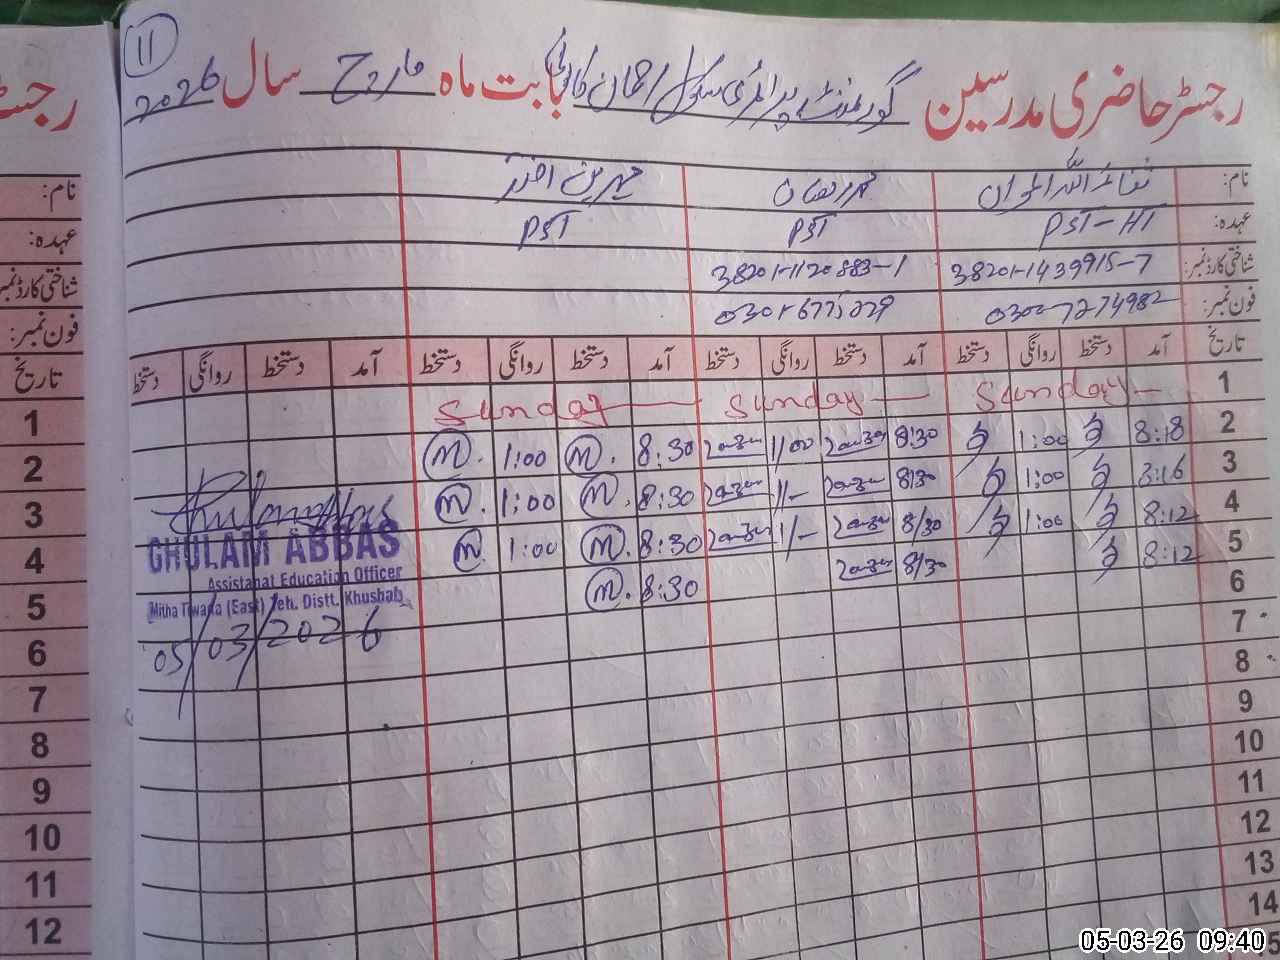 11
رجسٹر حاضری مدرسین گورنمنٹ پرائمری سکول بابت ماہ مارچ سال 2026
نام:
عہدہ: PST-HT PST PST
شناختی کارڈ نمبر: 38201-1439915-7 38201-1120883-1
فون نمبر: 0302-7274982 0301-6775229
تاریخ آمد دستخط روانگی دستخط آمد دستخط روانگی دستخط آمد دستخط روانگی دستخط آمد دستخط روانگی دستخط
1 Sunday Sunday Sunday
2 8:18 1:00 8:30 1/00 8:30 m. 1:00 m.
3 8:16 1:00 8:30 1/- 8:30 m. 1:00 m.
4 8:12 1:00 8/30 1/- 8:30 m. 1:00 m.
5 8:12 8/30 8:30 m.
6
7
8
9
10
11
12
13
14
GHULAM ABBAS
Assistanat Education Officer
Mitha Tiwana (East) Teh. Distt. Khushab
05/03/2026
رجسٹ
نام:
عہدہ:
شناختی کارڈ نمبر
فون نمبر:
تاریخ
1
2
3
4
5
6
7
8
9
10
11
12
05-03-26 09:40